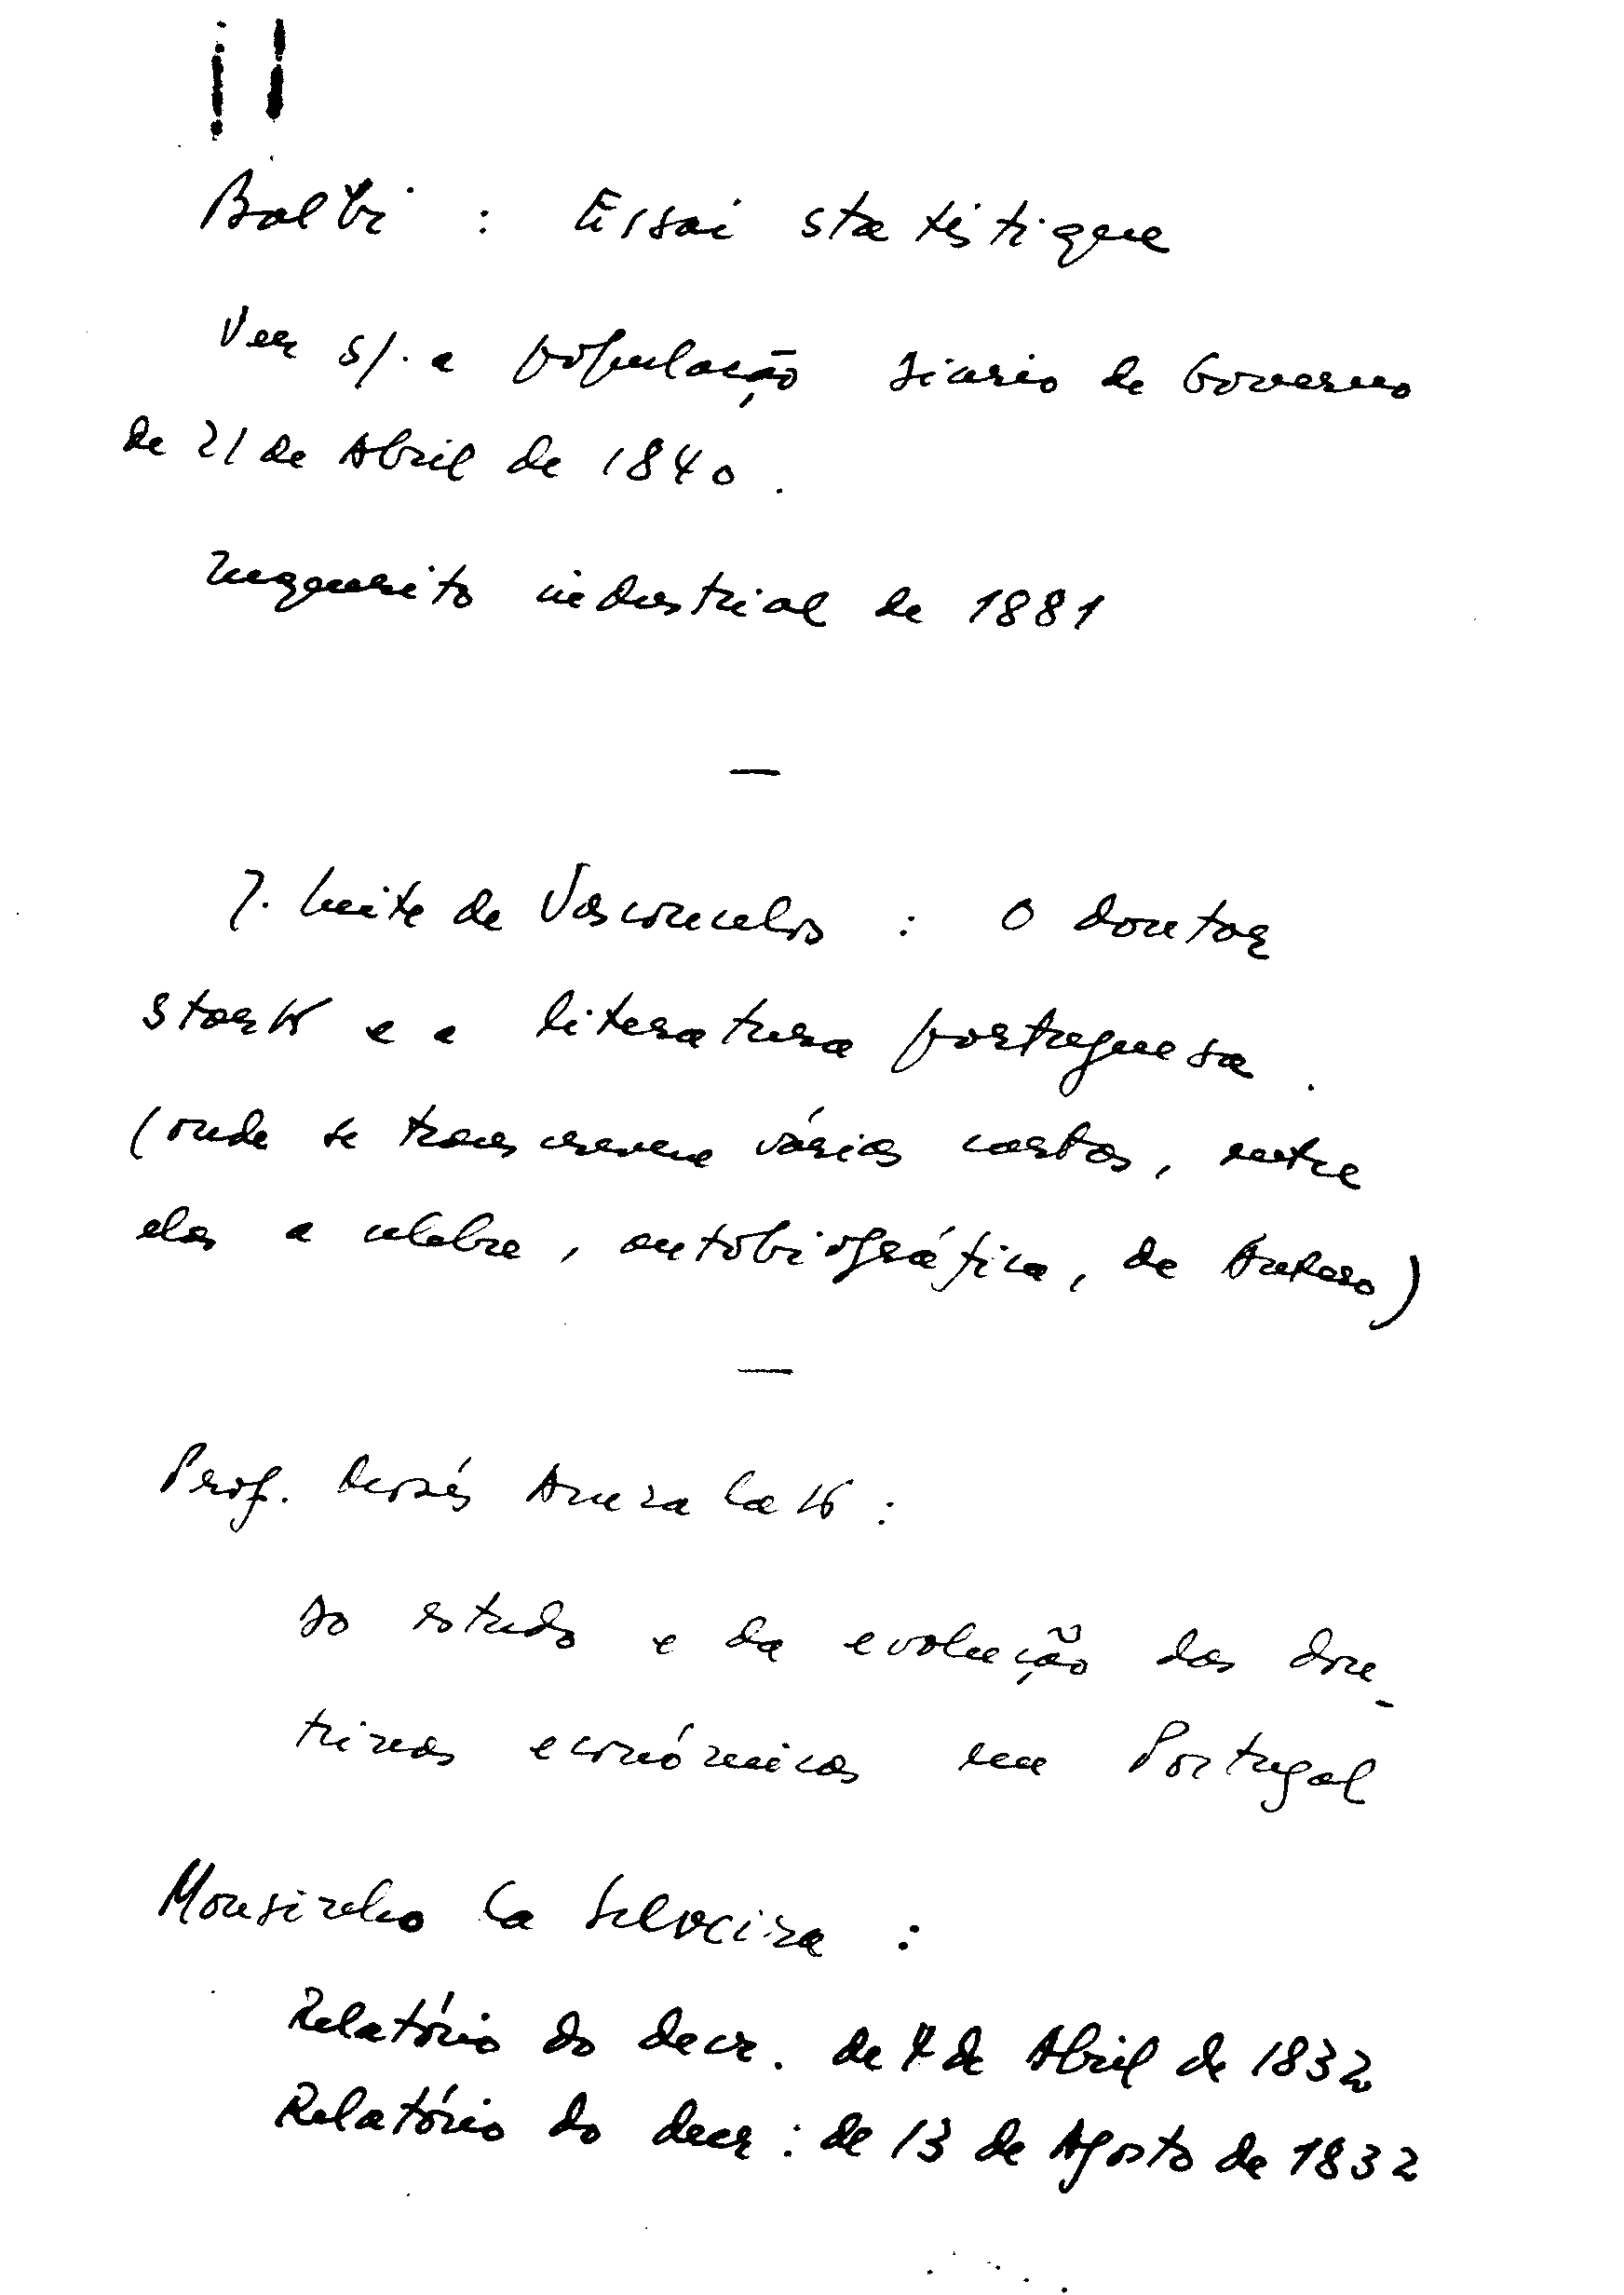 Balbi : Essai statistique
Ver s/. a população Diario de Governo
de 21 de Abril de 1840.
Inquerito industrial de 1881
—
J. Leite de Vasconcelos : O doutor
Stork e a literatura portuguesa.
(onde se transcreve várias cartas, entre
elas a celebre, autobiográfica, de Antero)
—
Prof. Moisés Amzalak :
Do estudo e da evolução das dou-
trinas económicas em Portugal
Mousinho da Silveira :
Relatório do decr. de 4 de Abril de 1832
Relatório do decr : de 13 de Agosto de 1832